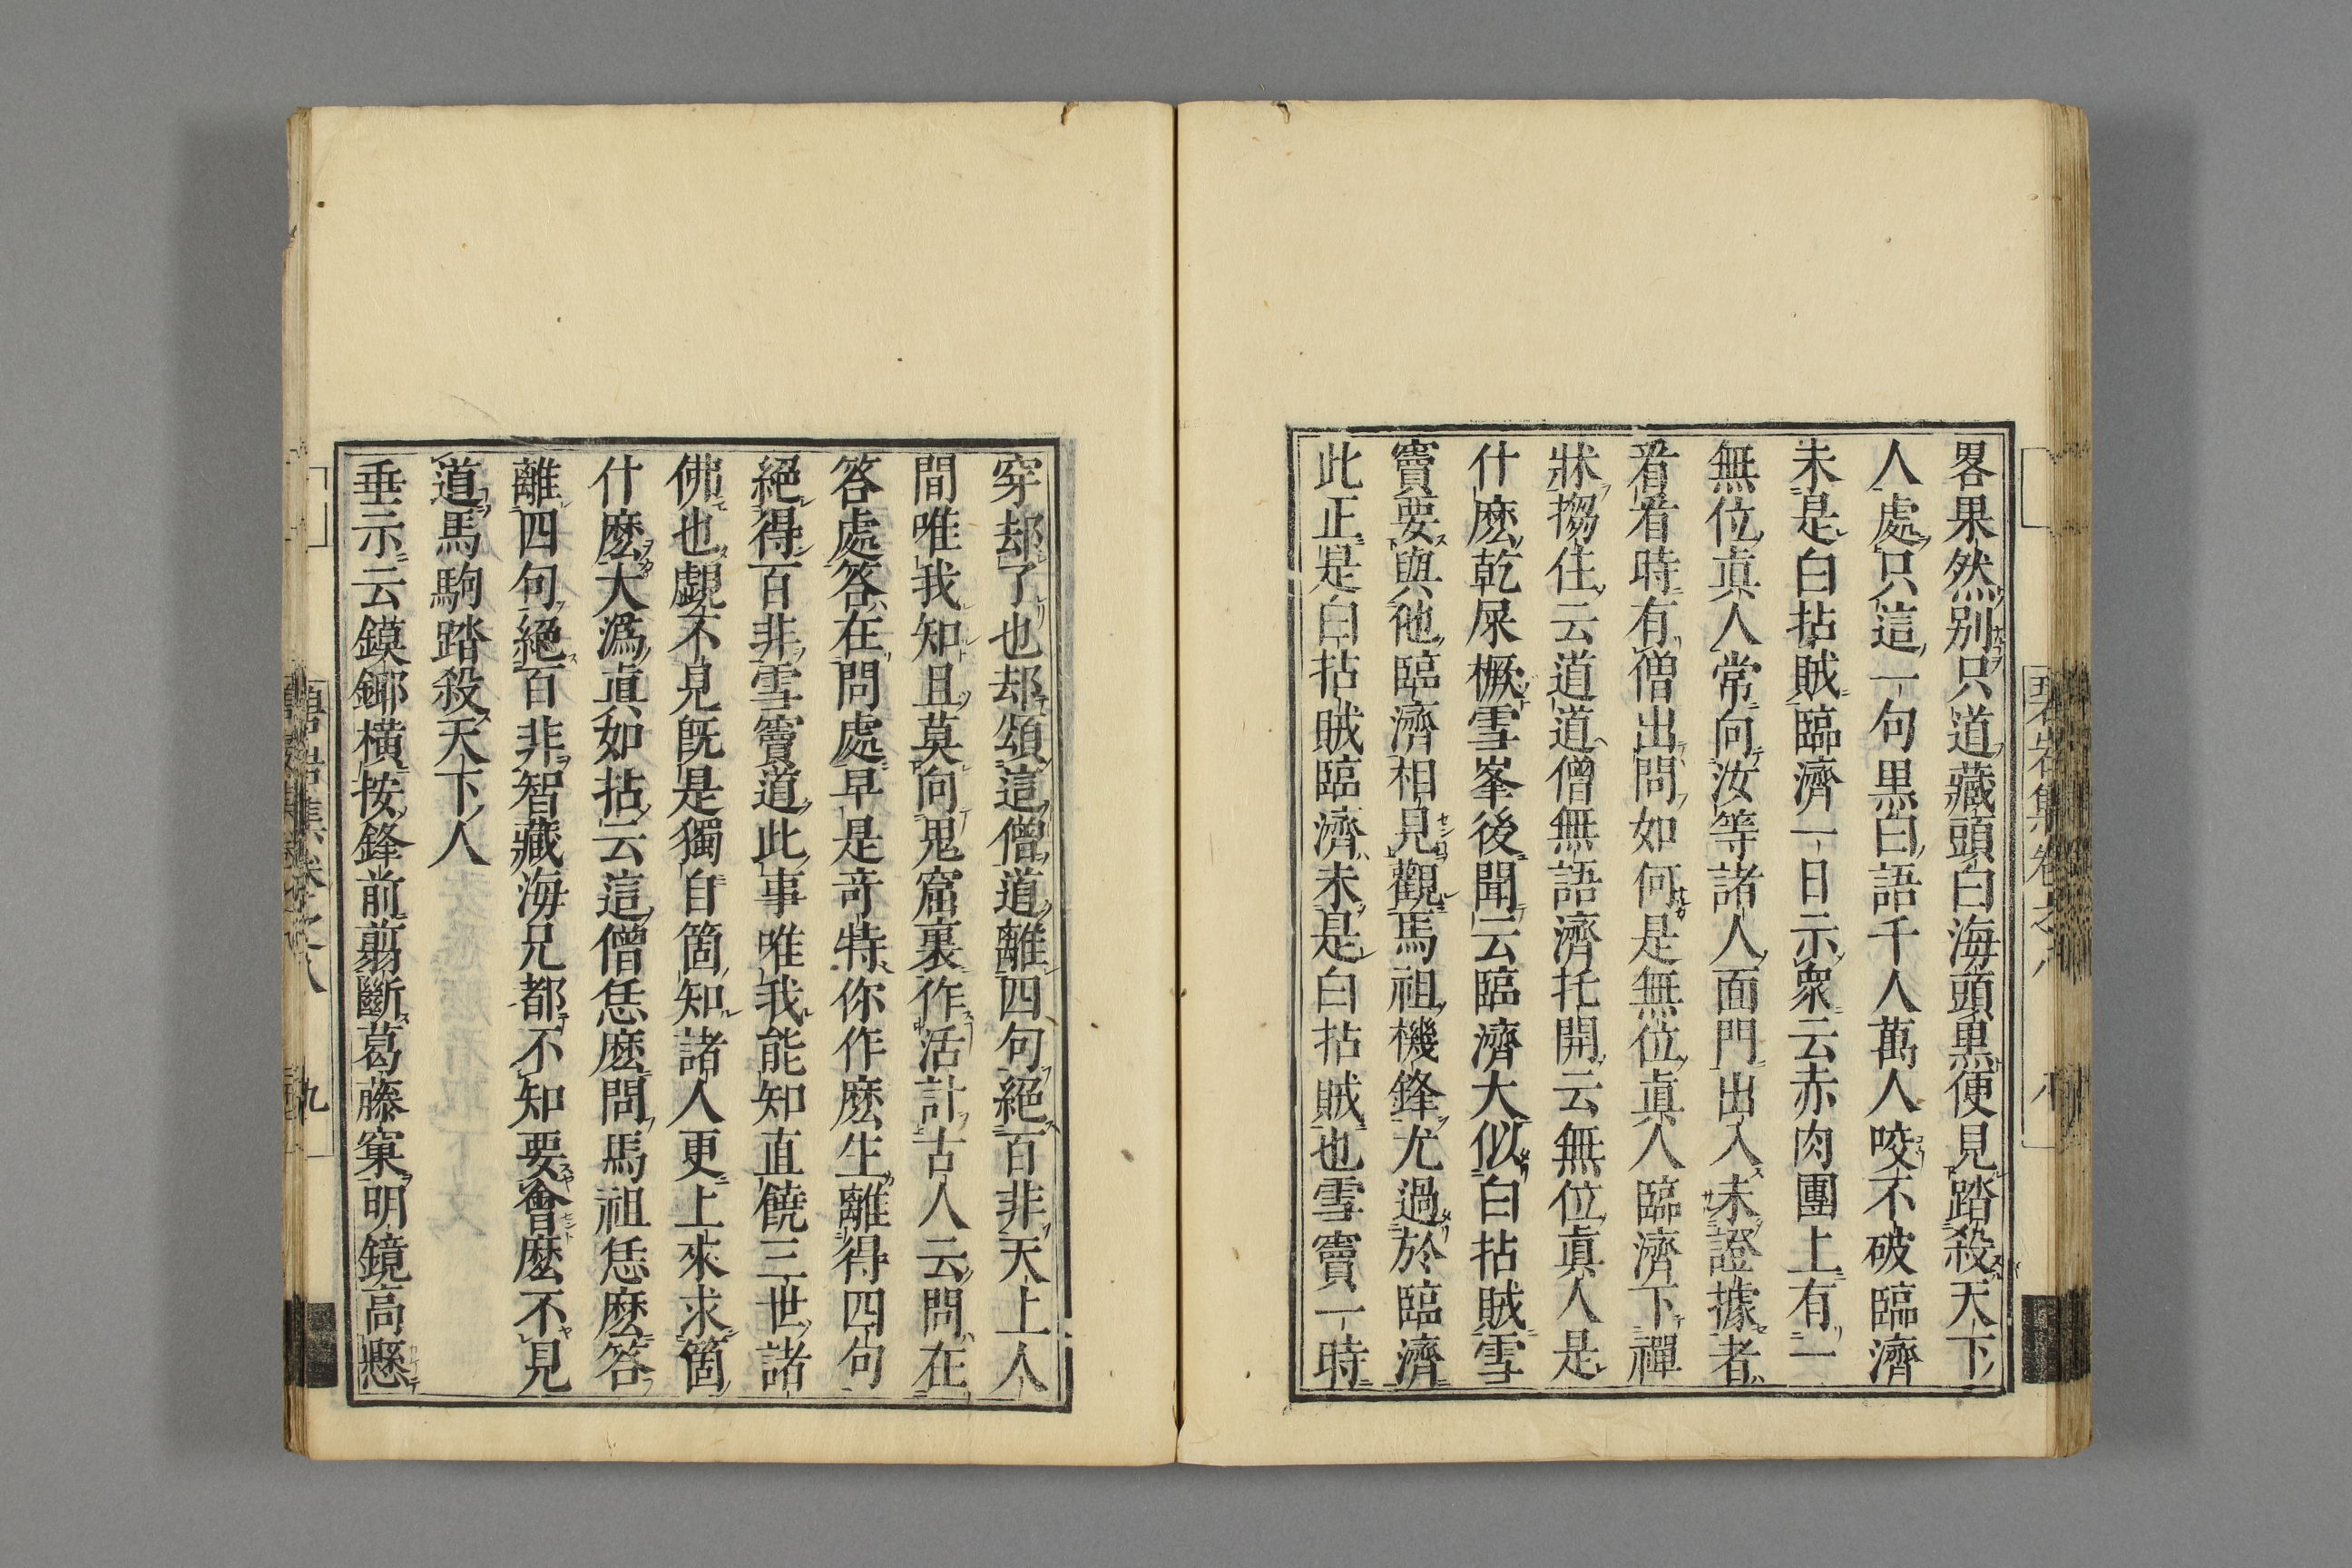 畧果然別只道藏頭白海頭黒便見踏殺天下
人處只這一句黒白語千人萬人咬不破臨濟
未是白拈賊臨濟一日示衆云赤肉團上有一
無位眞人常向汝等諸人面門出入未證據者
看看時有僧出問如何是無位眞人臨濟下禪
牀搊住云道道僧無語濟托開云無位眞人是
什麽乾屎橛雪峯後聞云臨濟大似白拈賊雪
竇要與他臨濟相見觀馬祖機鋒尤過於臨濟
此正是白拈賊臨濟未是白拈賊也雪竇一時
穿却了也却頌這僧道離四句絕百非天上人
間唯我知且莫向鬼窟裏作活計古人云問在
答處答在問處早是竒特你作麽生離得四句
絕得百非雪竇道此事唯我能知直饒三世諸
佛也覷不見旣是獨自箇知諸人更上來求箇
什麽大潙眞如拈云這僧恁麽問馬祖恁麽答
離四句絕百非智藏海兄都不知要會麽不見
道馬駒踏殺天下人
垂示云鏌鎁橫按鋒前剪斷葛藤窠明鏡高懸
九